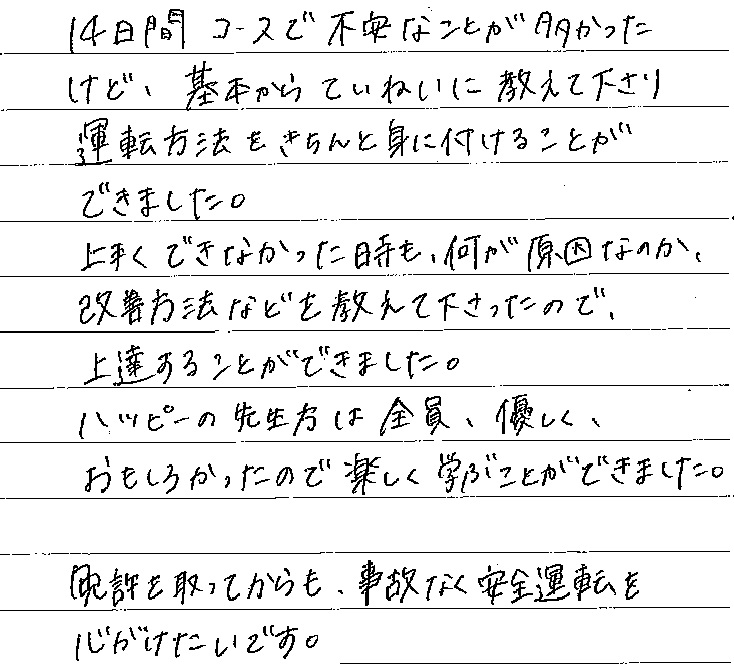 14日間 コースで不安なことが多かった
けど、基本からていねいに教えて下さり
運転方法をきちんと身に付けることが
できました。
上手くできなかった時も、何が原因なのか、
改善方法などを教えて下さったので、
上達することができました。
ハッピーの先生方は全員、優しく、
おもしろかったので楽しく学ぶことができました。
免許を取ってからも、事故なく安全運転を
心がけたいです。